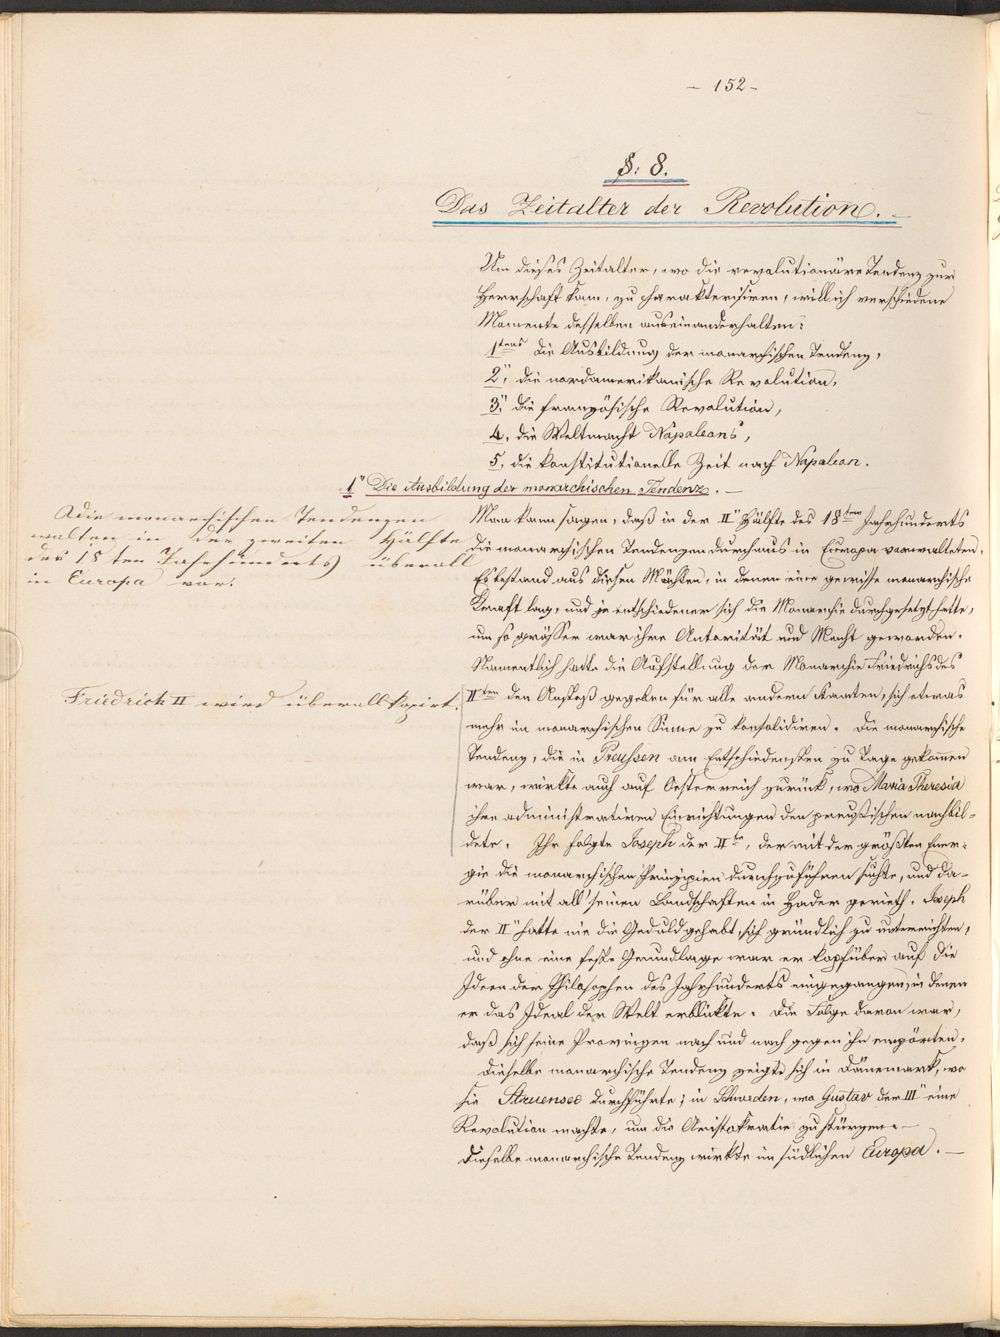 – 152 –
§: 8.
Das Zeitalter der Revolution. –
Um dieses Zeitalter, wo die revolutionäre Tendenz zur
Herrschaft kam, zu charakterisiren, will ich verschiedene
Momente desselben auseinanderhalten:
1tens die Ausbildung der monarchischen Tendenz,
2", die nordamerikanische Revolution,
3" die französische Revolution,
4, die Weltmacht Napoleons,
5, die konstitutionelle Zeit nach Napoleon.
1" Die Ausbildung der monarchischen Tendenz. –
Man kann sagen, daß in der II" Hälfte des 18ten Jahrhunderts
die monarchischen Tendenzen durchaus in Europa vorwalteten.
Es bestand aus diesen Mächten, in denen eine gewisse monarchische
Kraft lag, und je entschiedener sich die Monarchie durchgesetzt hatte,
um so grösser war ihre Autorität und Macht geworden.
Namentlich hatte die Aufstellung der Monarchie Friedrichs des
IIten den Anstoß gegeben für alle andern Staaten, sich etwas
mehr im monarchischen Sinne zu konsolidiren. Die monarchische
Tendenz, die in Preussen am Entschiedensten zu Tage gekommen
war, wirkte auch auf Oesterreich zurück, wo Maria Theresia
ihre administrativen Einrichtungen den preußischen nachbil-
dete. Ihr folgte Joseph der IIte, der mit der größten Ener-
gie die monarchischen Prinzipien durchzuführen suchte, und da-
rüber mit all' seinen Landschaften in Hader gerieth. Joseph
der II" hatte nie die Geduld gehabt, sich gründlich zu unterrichten,
und ohne eine feste Grundlage war er kopfüber auf die
Ideen der Philosophen des Jahrhunderts eingegangen, in denen
er das Ideal der Welt erblickte. Die Folge davon war,
daß sich seine Provinzen nach und nach gegen ihn empörten.
Dieselbe monarchische Tendenz zeigte sich in Dänemark, wo
sie Struensee durchführte; in Schweden, wo Gustav der III" eine
Revolution machte, um die Aristokratie zu stürzen. –
Dieselbe monarchische Tendenz wirkte im südlichen Europa. –
Die monarchischen Tendenzen
walten in der zweiten Hälfte
des 18ten Jahrhunderts überall
in Europa vor.
Friedrich II wird überall kopirt.